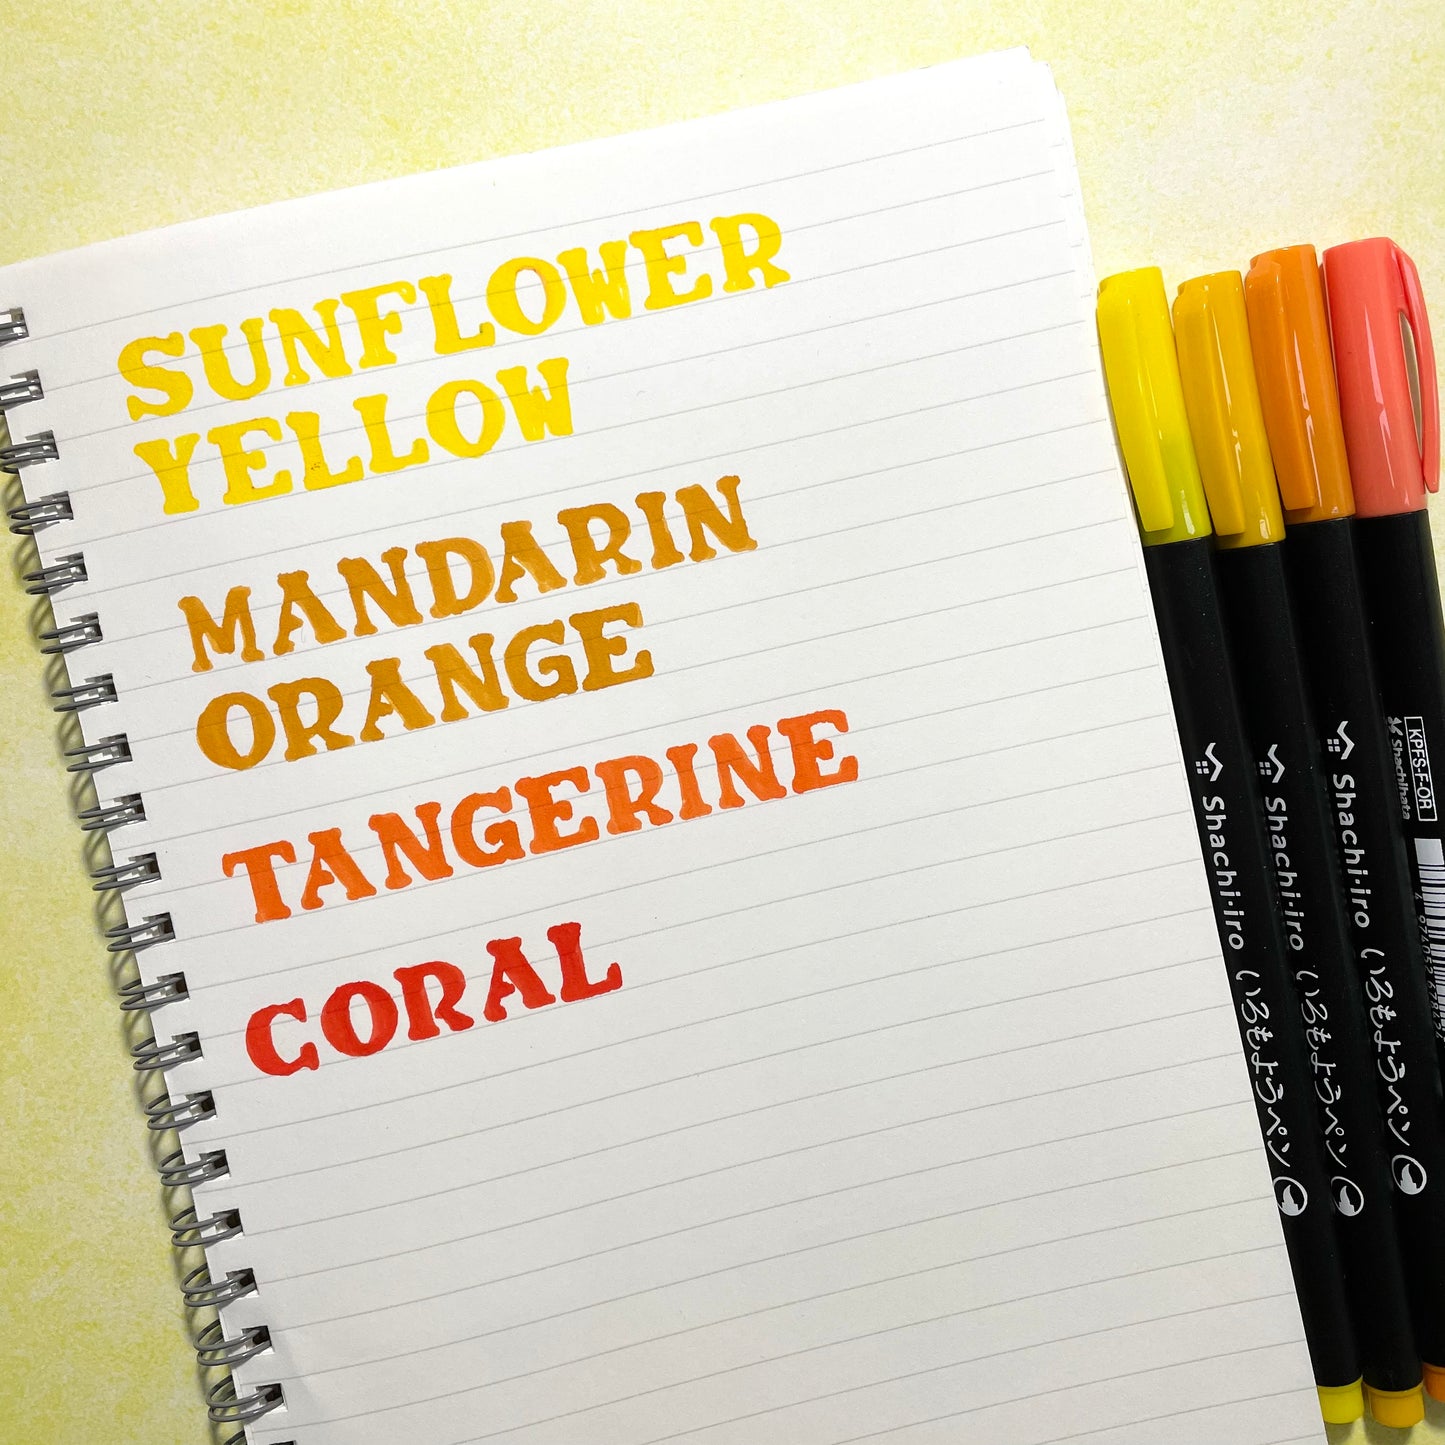 SUNFLOWER
YELLOW
MANDARIN
ORANGE
TANGERINE
CORAL
Shachi・iro いろもようペン
Shachi・iro いろもようペン
Shachi・iro いろもようペン
KPFS-F-OR
Shachihata